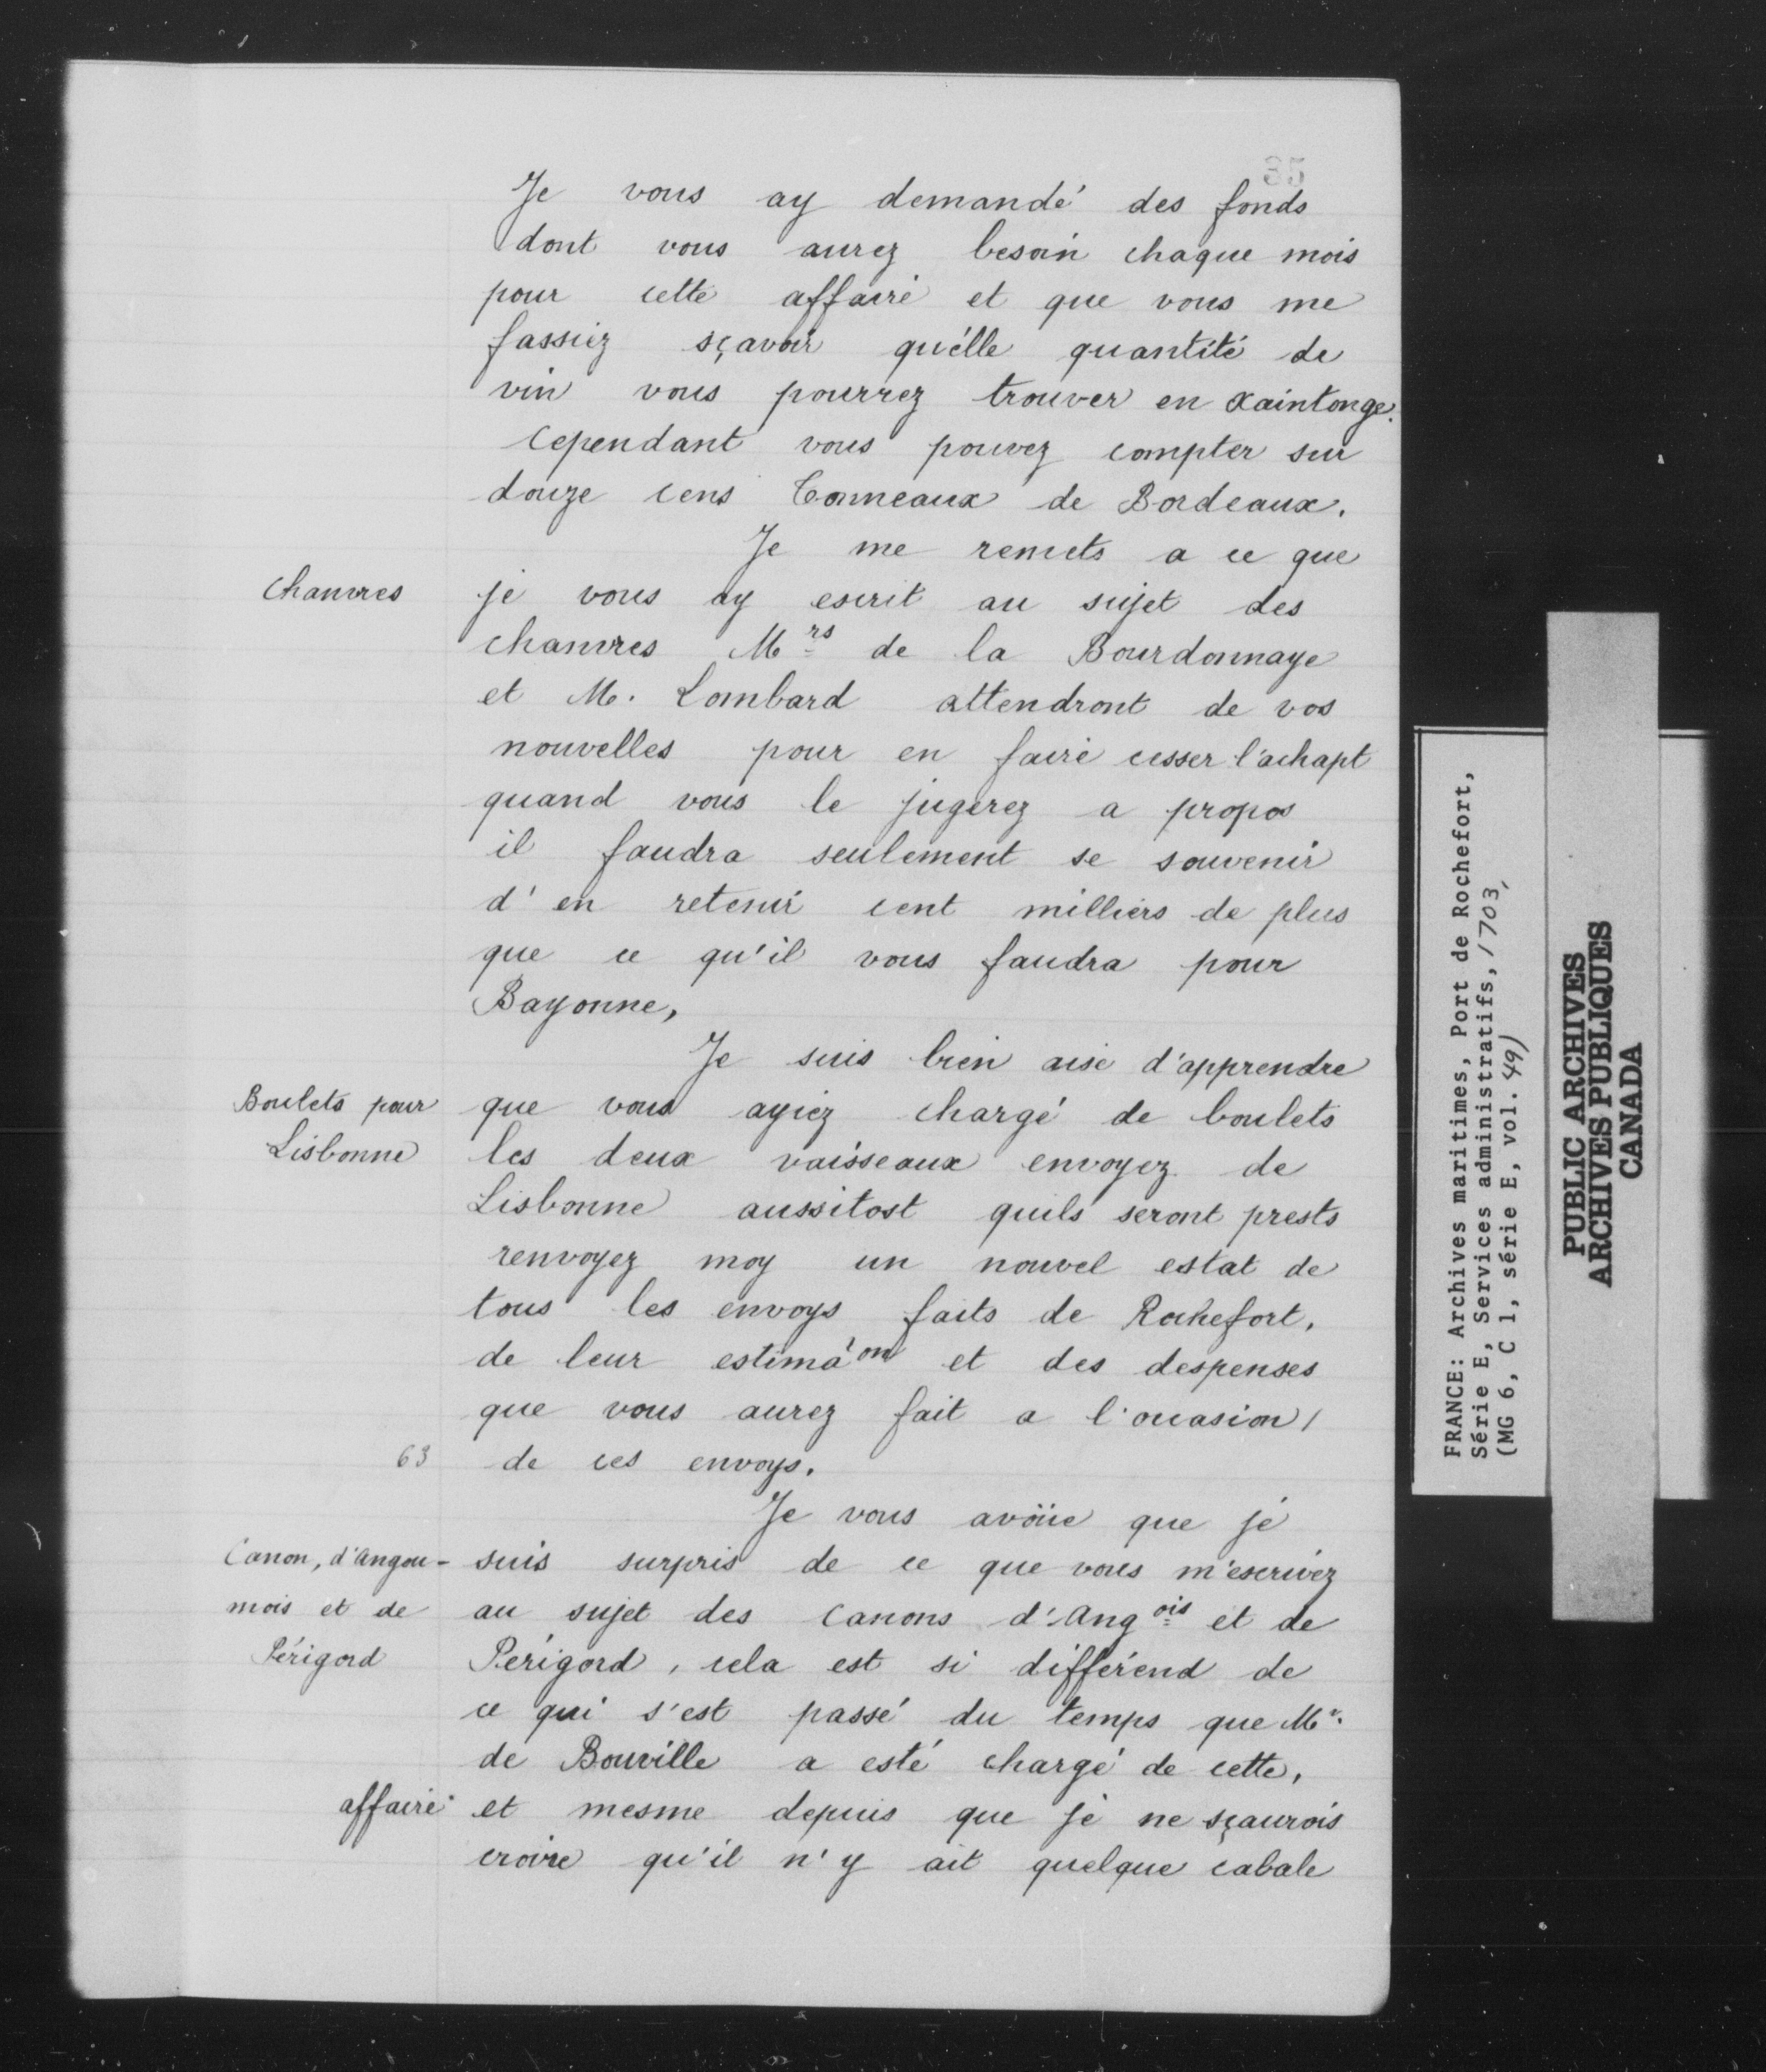 Je vous ay demandé des fonds
dont vous aurez besoin chaque mois
pour cette affaire et que vous me
fassiez sçavoir qu'elle quantité de
vin vous pourrez trouver en Xaintonge.
Cependant vous pouvez compter sur
douze cens Tonneaux de Bordeaux.
Je me remets a ce que
Chanvres
je vous ay escrit au sujet des
chanvres Mrs de la Bourdonnaye
et M. Lombard attendront de vos
nouvelles pour en faire cesser l'achapt
quand vous le jugerez a propos
il faudra seulement se souvenir
d'en retenir cent milliers de plus
que ce qu'il vous faudra pour
Bayonne,
Je suis bien aise d'apprendre
Boulets pour
Lisbonne
que vous ayiez chargé de boulets
les deux vaisseaux envoyez de
Lisbonne aussitost quils seront prests
renvoyez moy un nouvel estat de
tous les envoys faits de Rochefort,
de leur estima'on et des despenses
que vous aurez fait a l'occasion /
63
de ces envoys.
Je vous avoüe que je
Canon, d'Angou-
mois et de
Périgord
suis surpris de ce que vous m'escrivez
au sujet des Canons d'Angois et de
Périgord, cela est si différend de
ce qui s'est passé du temps que Mr.
de Bouville a esté chargé de cette,
affaire et mesme depuis que je ne sçaurois
croire qu'il n'y ait quelque cabale
FRANCE: Archives maritimes, Port de Rochefort,
Série E, Services administratifs, 1703,
(MG 6, C 1, série E, vol. 49)
PUBLIC ARCHIVES
ARCHIVES PUBLIQUES
CANADA